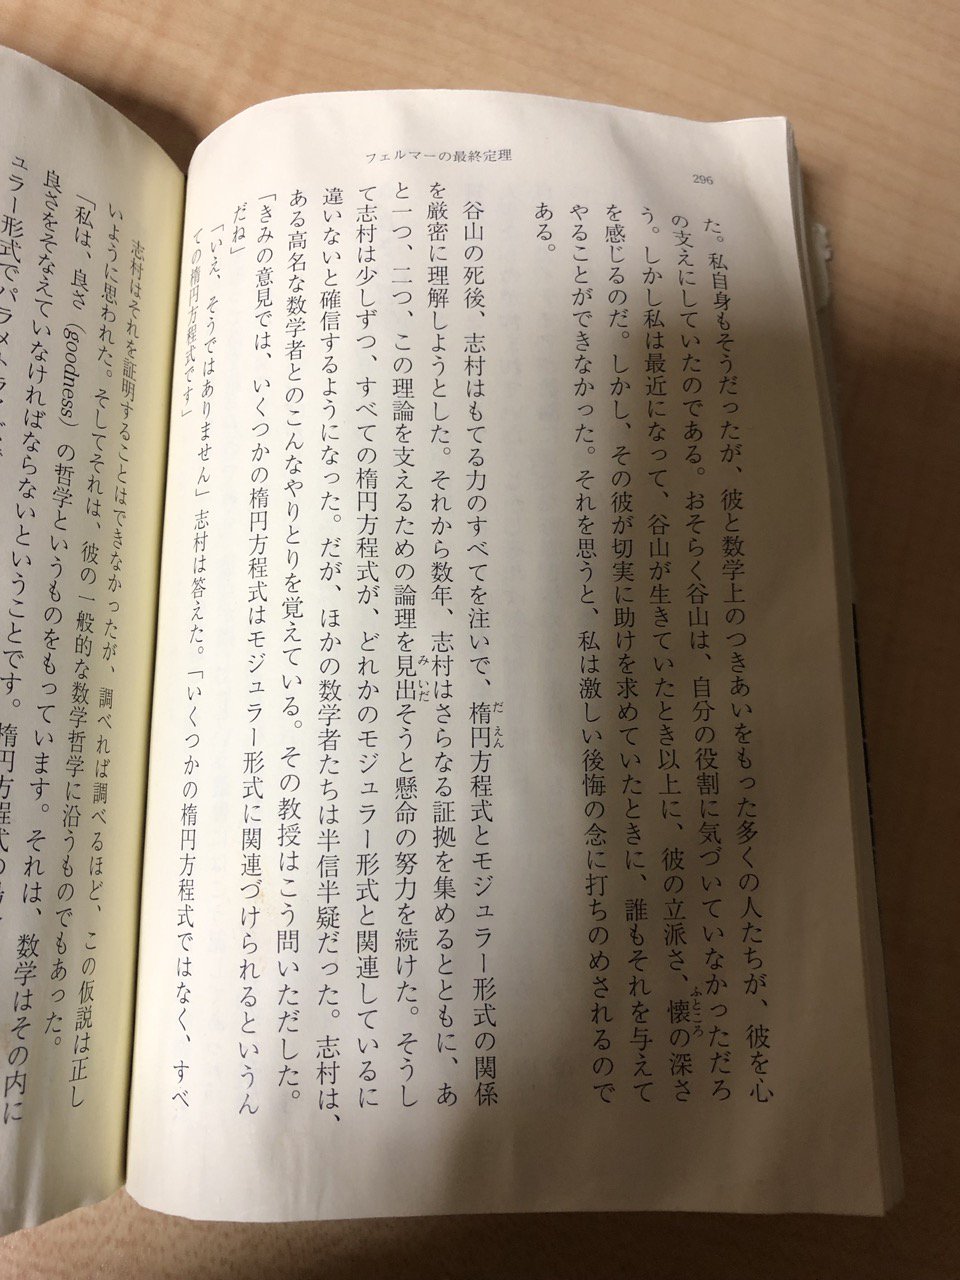 フェルマーの最終定理
296
た。私自身もそうだったが、彼と数学上のつきあいをもった多くの人たちが、彼を心
の支えにしていたのである。おそらく谷山は、自分の役割に気づいていなかっただろ
う。しかし私は最近になって、谷山が生きていたとき以上に、彼の立派さ、懐の深さ
ふところ
を感じるのだ。しかし、その彼が切実に助けを求めていたときに、誰もそれを与えて
やることができなかった。それを思うと、私は激しい後悔の念に打ちのめされるので
ある。
谷山の死後、志村はもてる力のすべてを注いで、楕円方程式とモジュラー形式の関係
だえん
を厳密に理解しようとした。それから数年、志村はさらなる証拠を集めるとともに、あ
と一つ、二つ、この理論を支えるための論理を見出そうと懸命の努力を続けた。そうし
みいだ
て志村は少しずつ、すべての楕円方程式が、どれかのモジュラー形式と関連しているに
違いないと確信するようになった。だが、ほかの数学者たちは半信半疑だった。志村は、
ある高名な数学者とのこんなやりとりを覚えている。その教授はこう問いただした。
「きみの意見では、いくつかの楕円方程式はモジュラー形式に関連づけられるというん
だね」
「いえ、そうではありません」志村は答えた。「いくつかの楕円方程式ではなく、すべ
ての楕円方程式です」
志村はそれを証明することはできなかったが、調べれば調べるほど、この仮説は正し
いように思われた。そしてそれは、彼の一般的な数学哲学に沿うものでもあった。
「私は、良さ（goodness）の哲学というものをもっています。それは、数学はその内に
良さをそなえていなければならないということです。
ュラー形式でパラメトライズ